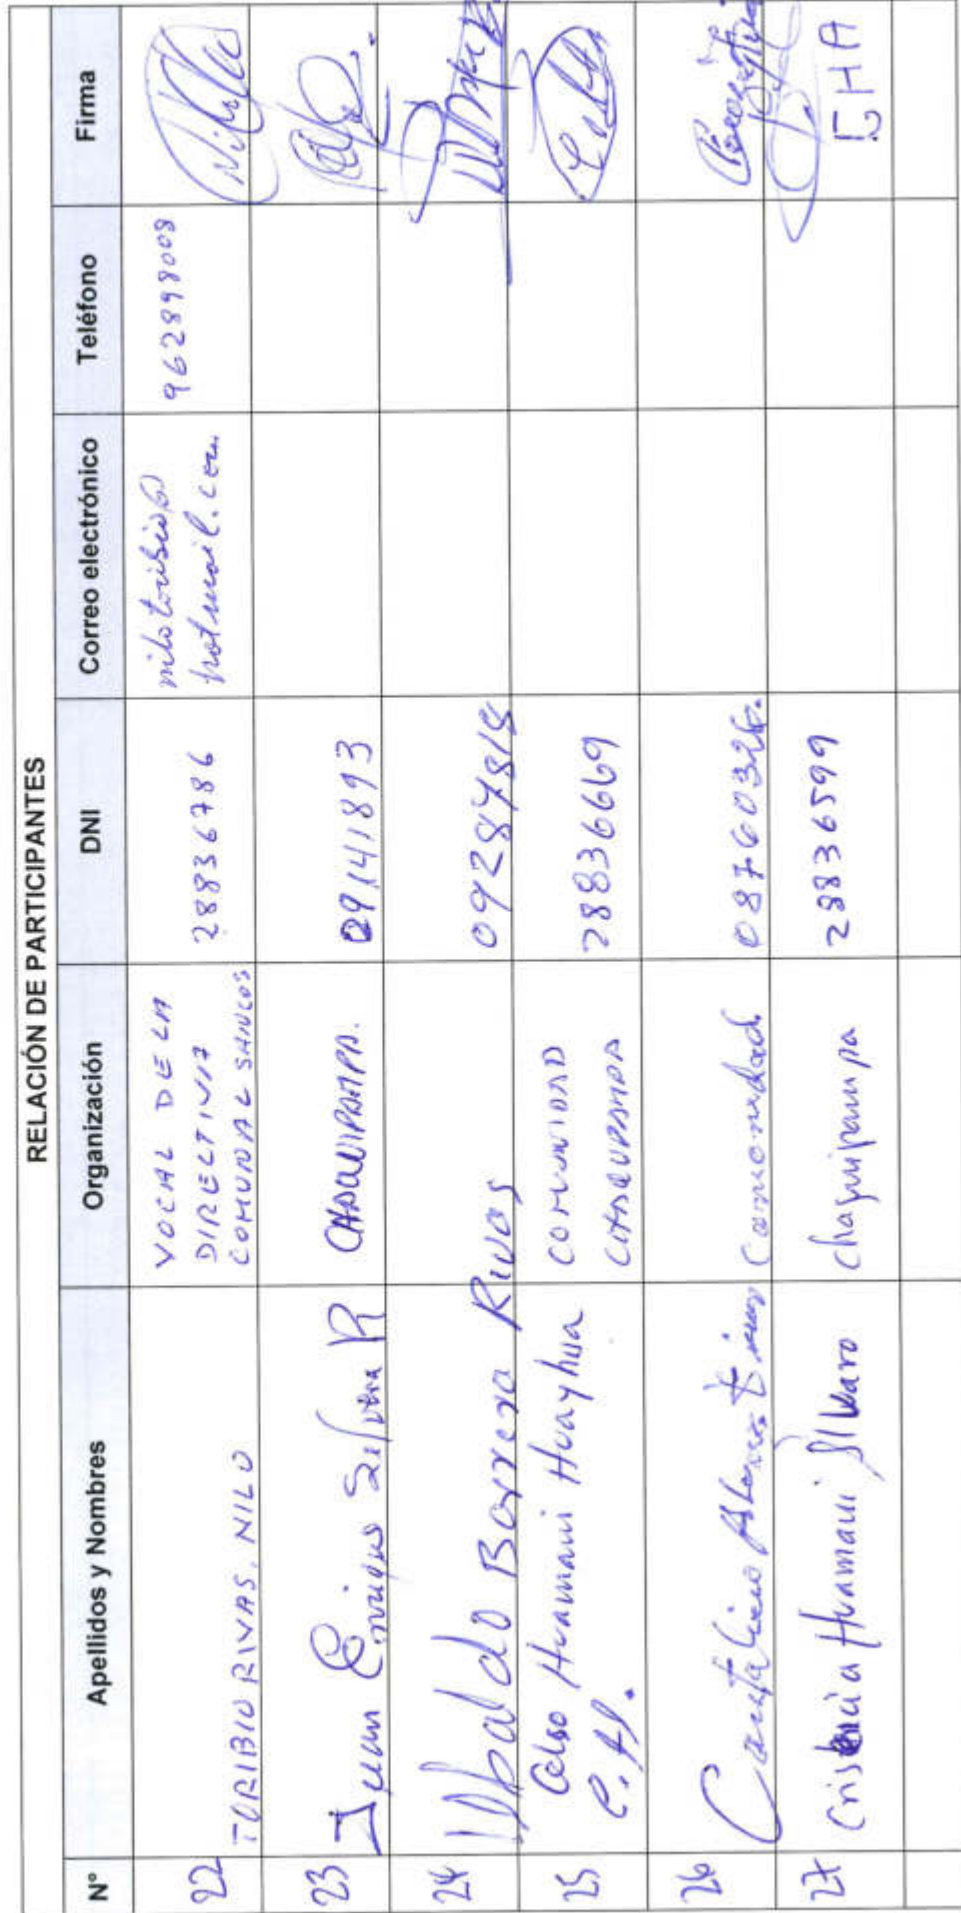 RELACIÓN DE PARTICIPANTES
N° Apellidos y Nombres Organización DNI Correo electrónico Teléfono Firma
22 TORIBIO RIVAS, NILO VOCAL DE LA DIRECTIVA COMUNAL SANCOS 28836786 nilotoribio@hotmail.com 962898008
23 Juan Enrique Silvera R CHAQUIPAMPA. 09141893
24 Ubaldo Barrera Rivas
25 Celso Huamani Huayhua C.H. COMUNIDAD 28836669
26 Comonidad 08760326.
27 Huamani Alvaro chaquipampa 28836599 CHA